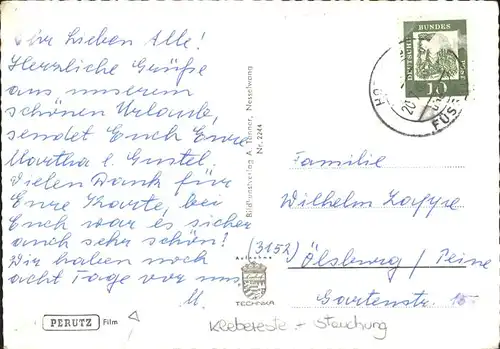 Ihr Lieben Alle!
Herzliche Grüße
aus unserem
schönen Urlaube,
sendet Euch Eure
Martha & Gustel.
Vielen Dank für
Eure Karte, bei
Euch war es sicher
auch sehr schön!
Wir haben noch
acht Tage vor uns.
M.
PERUTZ Film
Bildkunstverlag A. Tanner, Nesselwang
Nr. 2244
TECHNIKA
DEUTSCHE BUNDESPOST
10
20
FÜS
Familie
Wilhelm
(3152) Ölsburg / Peine
Gartenstr. 15
Klebereste - Stauchung